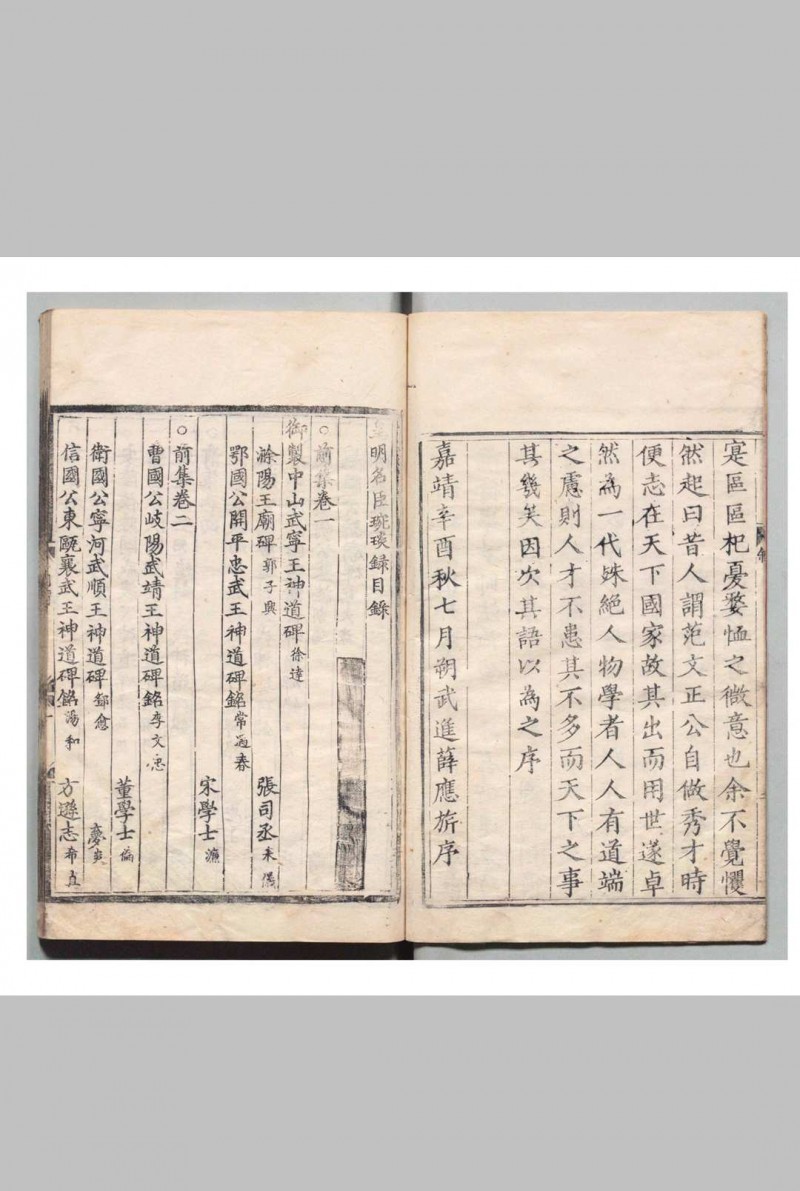 寔區區杞憂嫠恤之微意也余不覺懼
然起曰昔人謂范文正公自做秀才時
便志在天下國家故其出而用世遂卓
然為一代姝絕人物學者人人有道端
之慮則人才不患其不多而天下之事
其幾矣因次其語以為之序
嘉靖辛酉秋七月朔武進薛應旂序
皇明名臣琬琰録目錄
○前集卷一
御製中山武寧王神道碑 徐達
滁陽王廟碑 郭子興 張司丞 来儀
鄂國公開平忠武王神道碑銘 常遇春
宋學士 濂
○前集卷二
曹國公岐陽武靖王神道碑銘 李文忠
董學士 倫
衛國公寧河武順王神道碑 鄧愈 夢
信國公東甌襄武王神道碑銘 湯和 方遜志 希直